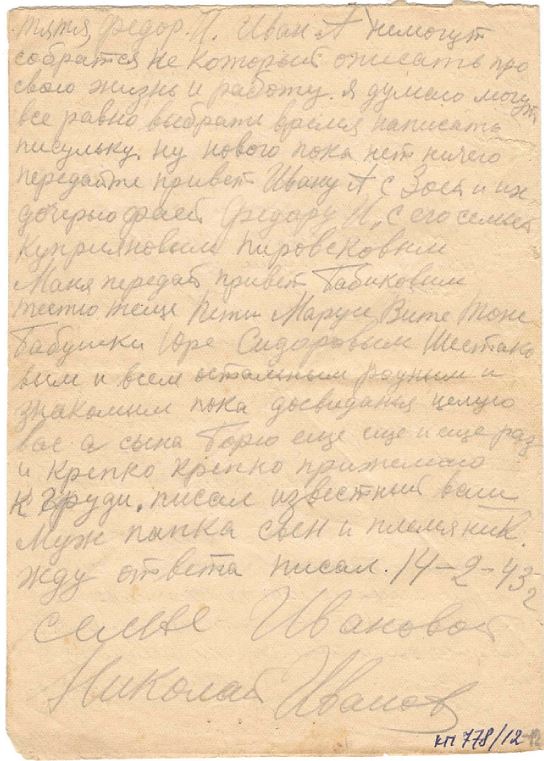 тятя, Федор. И. Иван А немогут
собратся не который описать про
свою жизнь и работу. Я думаю могут
все равно выбрати время написать
писульку. ну нового пока нет ничего
передайте привет Ивану А, с Зоей и их
дочерью фаей Федору И, с его семьей
Куприяновым Пировсковым
Маня передай привет Бабиковим
тестю теще Пети Маруси Вите Тоне
Бабушки Юре Сидоровым Шестако
вим и всем остальным родним и
знакомим пока досвидания целую
вас а сына Борю еще еще и еще раз
и крепко крепко прижемаю
к груди. писал известний вам
Муж папка сын и племяник.
жду ответа писал. 14-2-43
семье Ивановой
Николай Иванов
КП 778/12